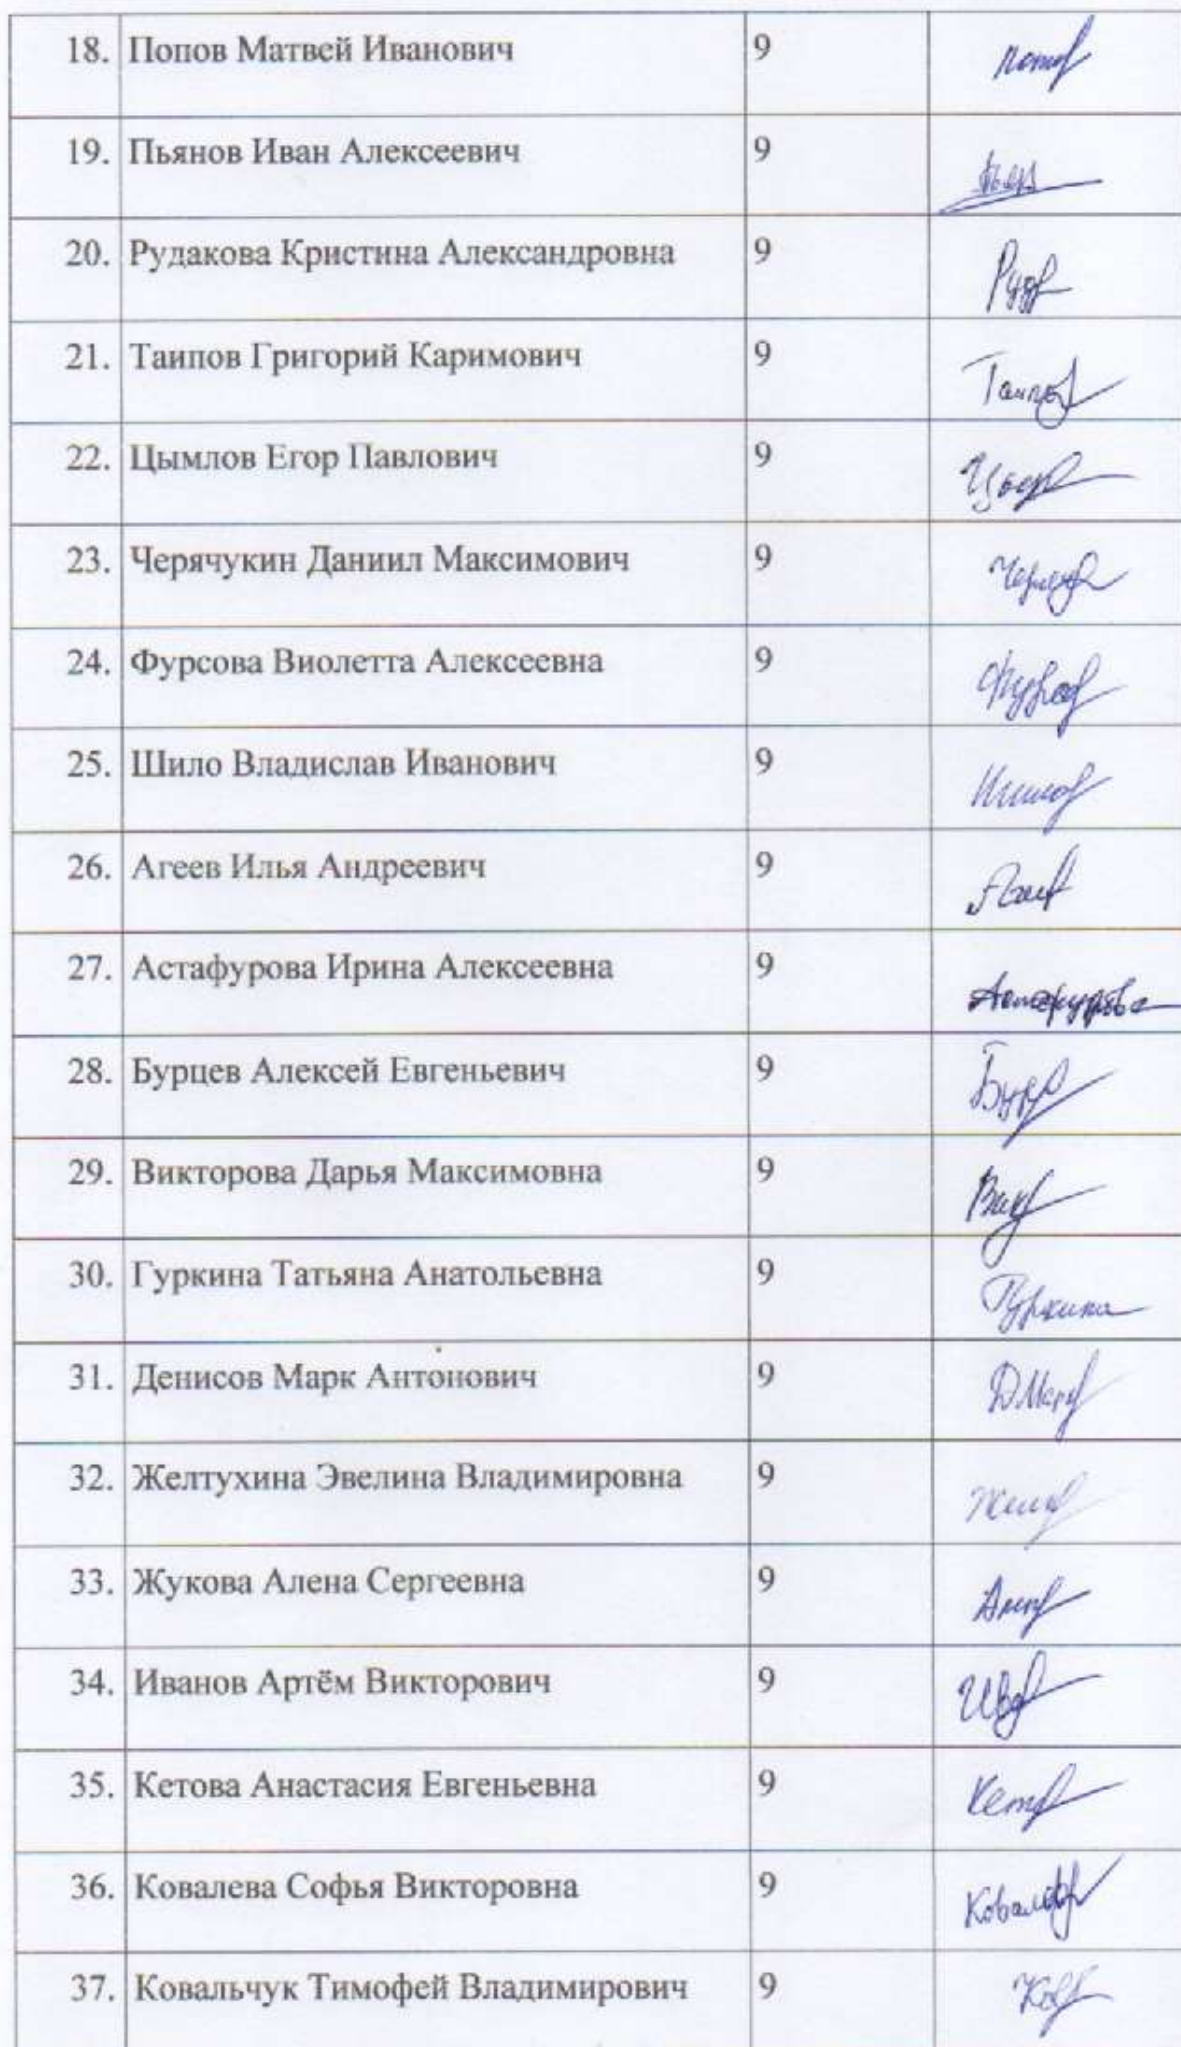 18. Попов Матвей Иванович 9
19. Пьянов Иван Алексеевич 9
20. Рудакова Кристина Александровна 9
21. Таипов Григорий Каримович 9
22. Цымлов Егор Павлович 9
23. Черячукин Даниил Максимович 9
24. Фурсова Виолетта Алексеевна 9
25. Шило Владислав Иванович 9
26. Агеев Илья Андреевич 9
27. Астафурова Ирина Алексеевна 9 Астафурова
28. Бурцев Алексей Евгеньевич 9
29. Викторова Дарья Максимовна 9
30. Гуркина Татьяна Анатольевна 9 Гуркина
31. Денисов Марк Антонович 9
32. Желтухина Эвелина Владимировна 9
33. Жукова Алена Сергеевна 9
34. Иванов Артём Викторович 9
35. Кетова Анастасия Евгеньевна 9
36. Ковалева Софья Викторовна 9
37. Ковальчук Тимофей Владимирович 9